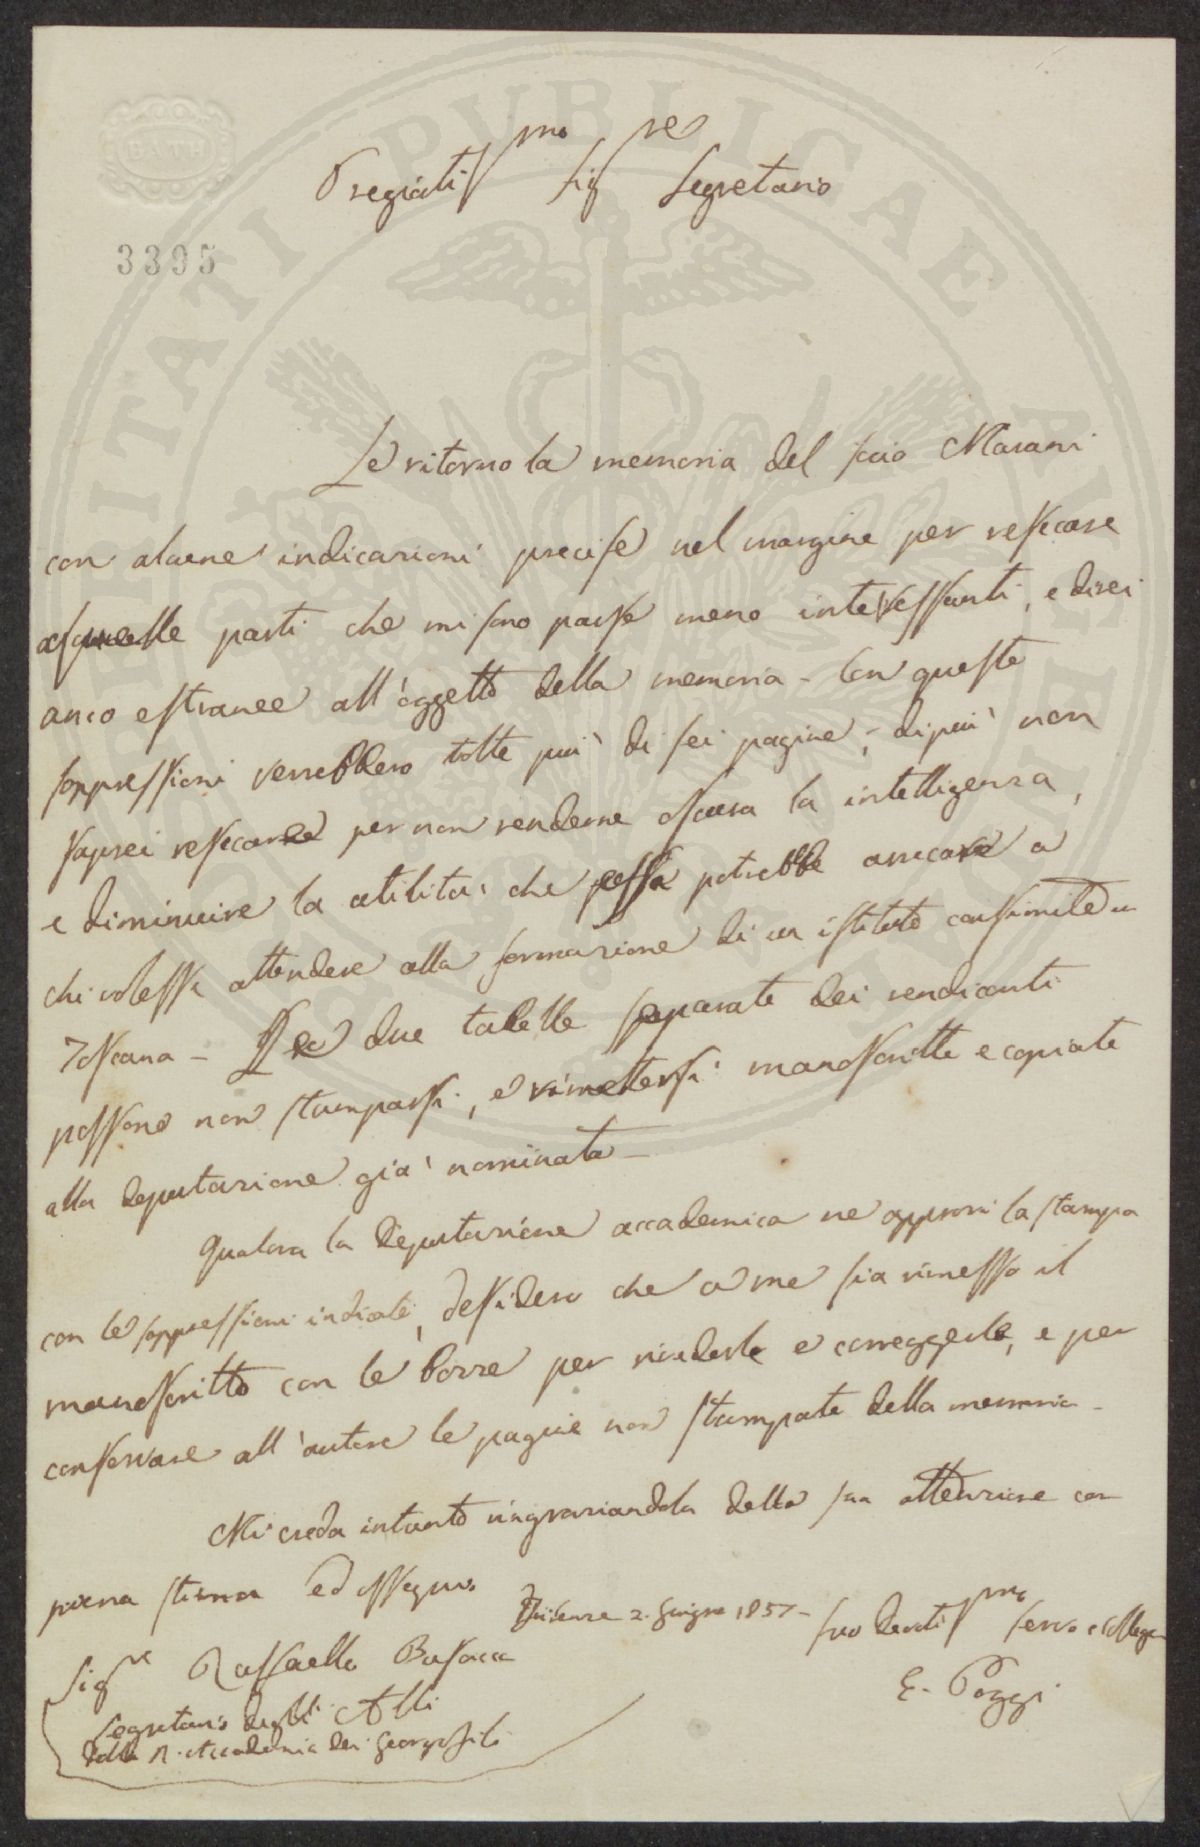 BATH
3395
PROSPERITATI PVBLICAE AVGENDAE
Pregiatissmo Sigre Segretario
Le ritorno la memoria del socio Marani
con alcune indicazioni precise nel margine per resecare
quelle parti che mi sono parse meno interessanti, e direi
anco estranee all'oggetto della memoria - Con queste
soppressioni verrebbero tolte più di sei pagine; dipiù non
saprei resecare per non renderne oscura la intelligenza,
e diminuire la utilità che essa potrebbe arrecare a
chi volesse attendere alla formazione di un istituto consimile in
Toscana - Le due tabelle separate dei rendiconti
possono non stamparsi, e rimettersi manoscritte e copiate
alla deputazione già nominata -
Qualora la Deputazione accademica ne approvi la stampa
con le soppressioni indicate, desidero che a me sia rimesso il
manoscritto con le bozze per rivederle e correggerle, e per
conservare all'autore le pagine non stampate della memoria -
Mi creda intanto ringraziandola della sua attenzione con
piena stima ed ossequio
Firenze 2. Giugno 1857 -
Suo Devotissmo servo e Collega
E. Poggi
Sigre Raffaello Busacca
Segretario degli Atti
della R. Accademia dei Georgofili